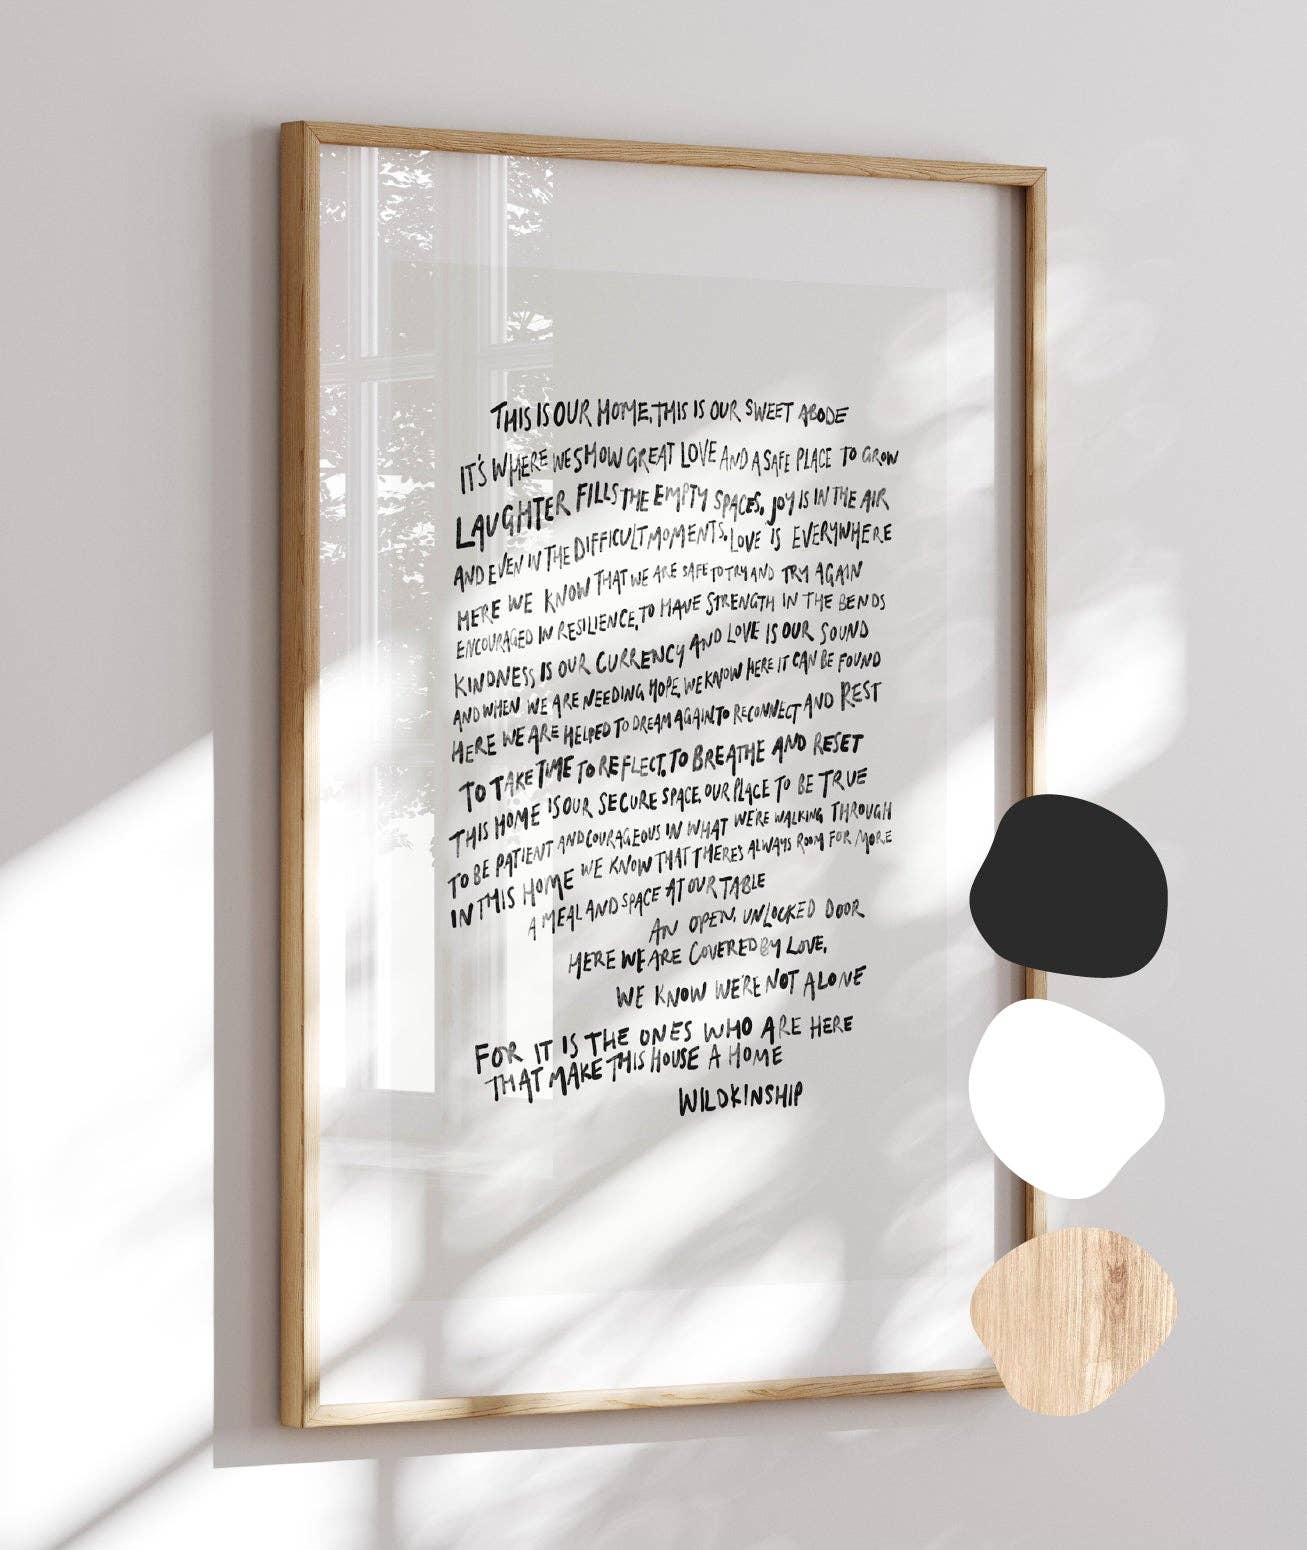 THIS IS OUR HOME, THIS IS OUR SWEET ABODE
IT'S WHERE WE SHOW GREAT LOVE AND A SAFE PLACE TO GROW
LAUGHTER FILLS THE EMPTY SPACES. JOY IS IN THE AIR
AND EVEN IN THE DIFFICULT MOMENTS. LOVE IS EVERYWHERE
HERE WE KNOW THAT WE ARE SAFE TO TRY AND TRY AGAIN
ENCOURAGED IN RESILIENCE, TO HAVE STRENGTH IN THE BENDS
KINDNESS IS OUR CURRENCY AND LOVE IS OUR SOUND
AND WHEN WE ARE NEEDING HOPE, WE KNOW HERE IT CAN BE FOUND
HERE WE ARE HELPED TO DREAM AGAIN TO RECONNECT AND REST
TO TAKE TIME TO REFLECT, TO BREATHE AND RESET
THIS HOME IS OUR SECURE SPACE. OUR PLACE TO BE TRUE
TO BE PATIENT AND COURAGEOUS IN WHAT WE'RE WALKING THROUGH
IN THIS HOME WE KNOW THAT THERE'S ALWAYS ROOM FOR MORE
A MEAL AND SPACE AT OUR TABLE
AN OPEN, UNLOCKED DOOR
HERE WE ARE COVERED BY LOVE,
WE KNOW WE'RE NOT ALONE
FOR IT IS THE ONES WHO ARE HERE
THAT MAKE THIS HOUSE A HOME
WILDKINSHIP